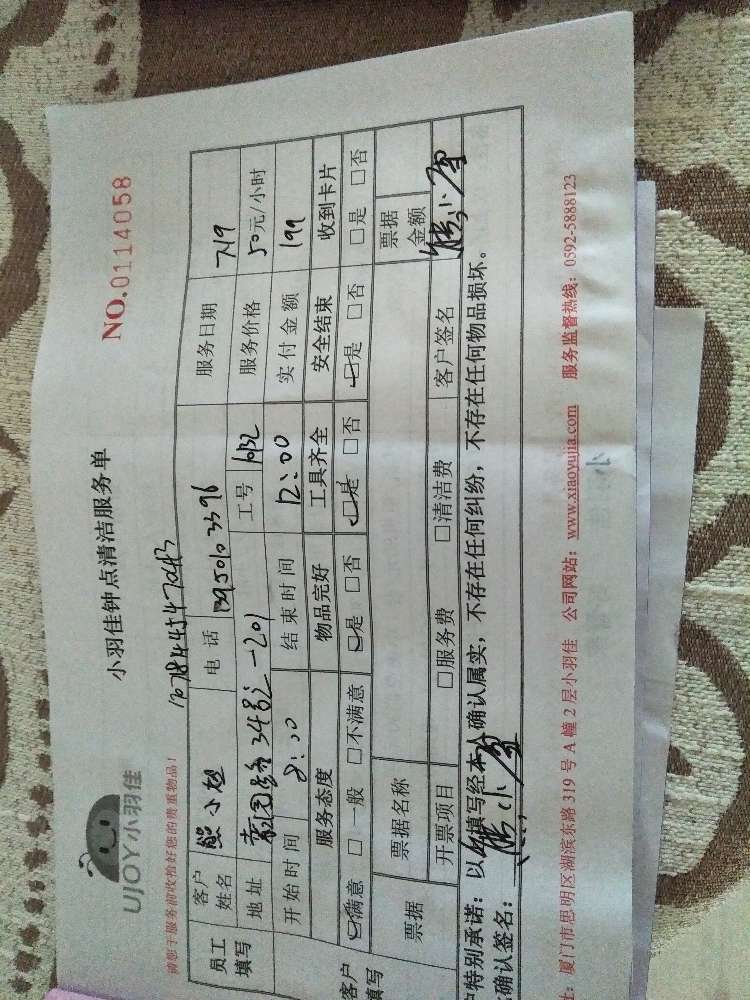 UJOY小羽佳
小羽佳钟点清洁服务单
NO.0114058
请您于服务前收拾好您的贵重物品!
员工填写
客户姓名 电话 服务日期 7.19
地址 34号之一201 工号 服务价格 50元/小时
开始时间 8:00 结束时间 12:00 实付金额 199
客户填写
服务态度 物品完好 工具齐全 安全结束 收到卡片
□满意 □一般 □不满意 □是 □否 □是 □否 □是 □否 □是 □否
票据 票据名称 票据金额
开票项目 □服务费 □清洁费 客户签名
户特别承诺:以上填写经本人确认属实,不存在任何纠纷,不存在任何物品损坏。
确认签名:
厦门市思明区湖滨东路319号A幢2层小羽佳 公司网站:www.xiaoyujia.com 服务监督热线:0592-5888123